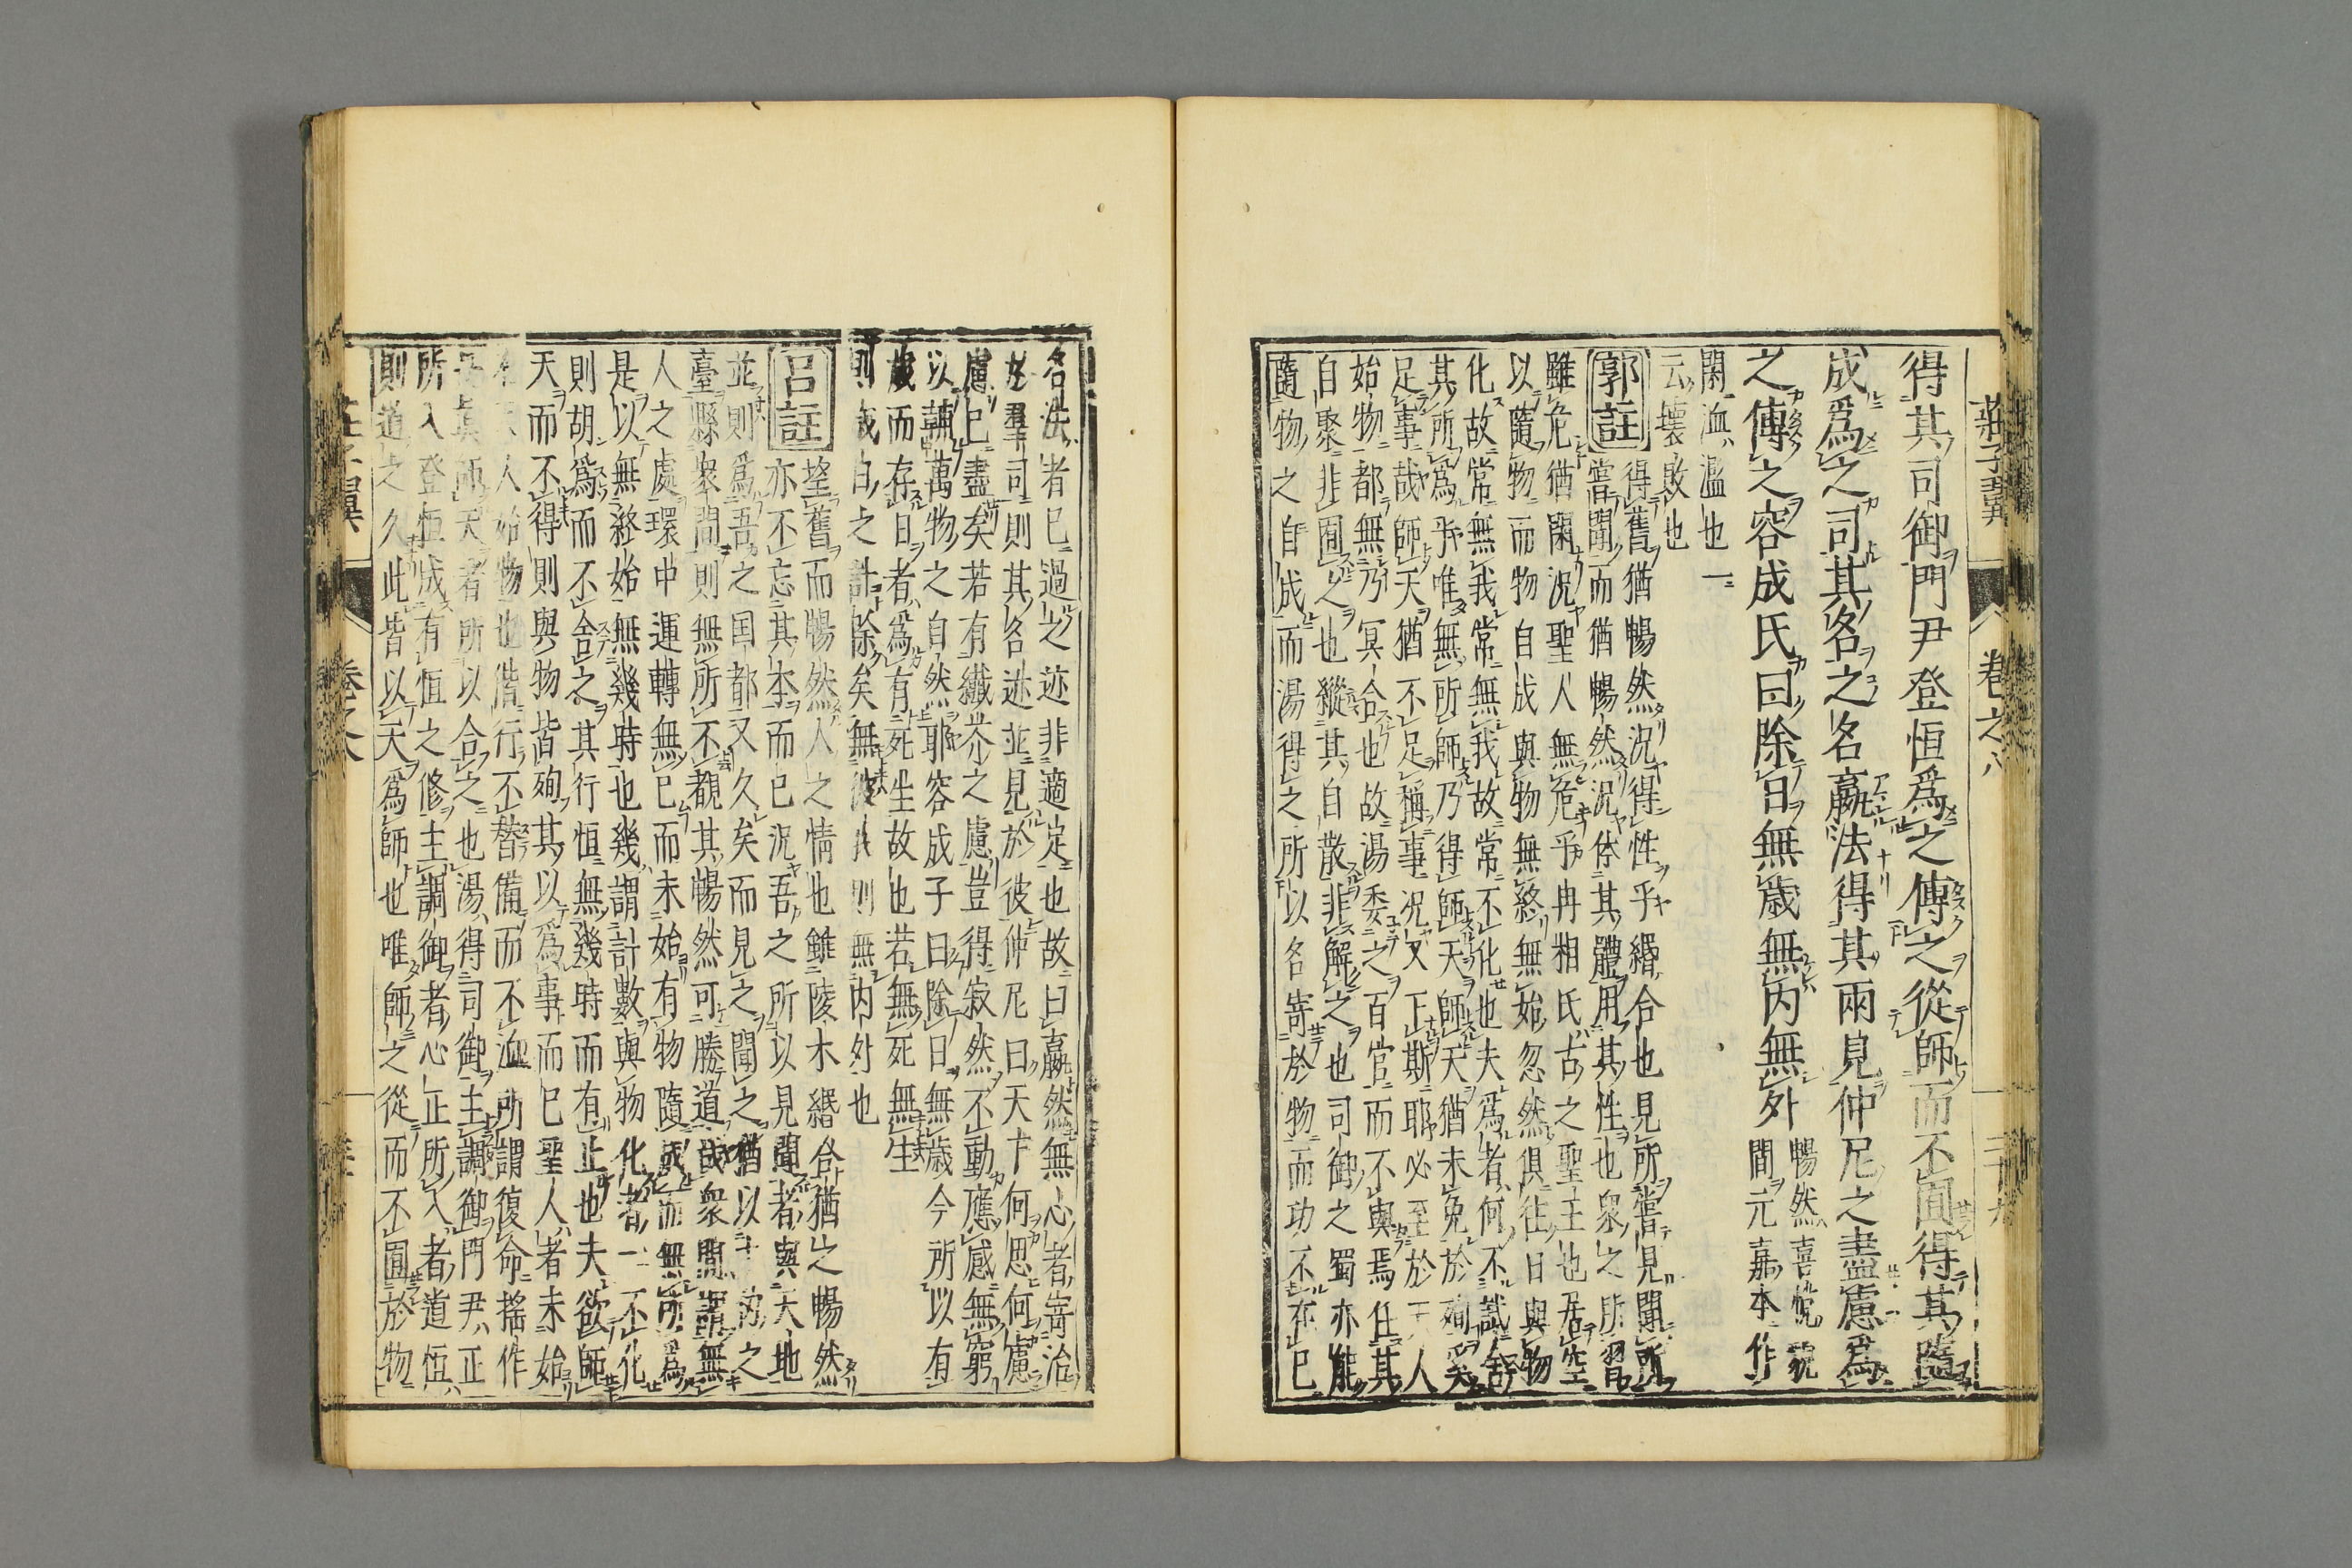 莊子翼 卷之八
得其司御門尹登恒爲之傅之從師而不囿得其隨
成爲之司其名之名嬴法得其兩見仲尼之盡慮爲
之傅之容成氏曰除日無歲無內無外
暢然喜悅貌
閒元嘉本作
閑洫濫也一
云壞敗也
郭註
得舊猶暢然況得性乎緡合也見所嘗見聞所
嘗聞而猶暢然況体其體用其性也衆之所習
雖危猶閑況聖人無危乎冉相氏古之聖王也居空
以隨物而物自成與物無終無始忽然俱往日與物
化故常無我常無我故常不化也夫爲者何不試舍
其所爲乎唯無所師乃得師天師天猶未免於殉奚
足事哉師天猶不足稱事況又正斯耶必至於天人
始物都無乃冥合也故湯委之百官而不與焉任其
自聚非囿之也縱其自散非解之也司御之蜀亦能
隨物之自成而湯得之所以名寄於物而功不在已
名法者已過之迹非適定也故曰嬴然無心者寄治
於羣司則其名迹並見於彼仲尼曰天下何思何慮
慮已盡矣若有纖芥之慮豈得寂然不動應感無窮
以輔萬物之自然耶容成子曰除日無歲今所以有
歲而存日者爲有死生故也若無死無生
則歲日之計除矣無彼我則無內外也
呂註
望舊而暢然人之情也雖陵木緡合猶之暢然
亦不忘其本而已況吾之所以見聞者與天地
並則爲吾之国都又久矣而見之聞之猶以十仞之
臺縣衆間則無所不覩其暢然可勝道哉衆間謂無
人之處環中運轉無已而未始有物隨成而無所爲
是以無終始無幾時也幾謂計數與物化者一不化
則胡爲而不舍之其行恒無幾時而有止也夫欲師
天而不得則與物皆殉其以爲事而已聖人者未始
人始物也偕行不替備而不洫所謂復命搖作
師天者所以合之也湯得司御主調御門尹正
所入登恒成有恒之修主調御者心正所入者道恒
則道之久此皆以天爲師也唯師之從而不囿於物
卷之八